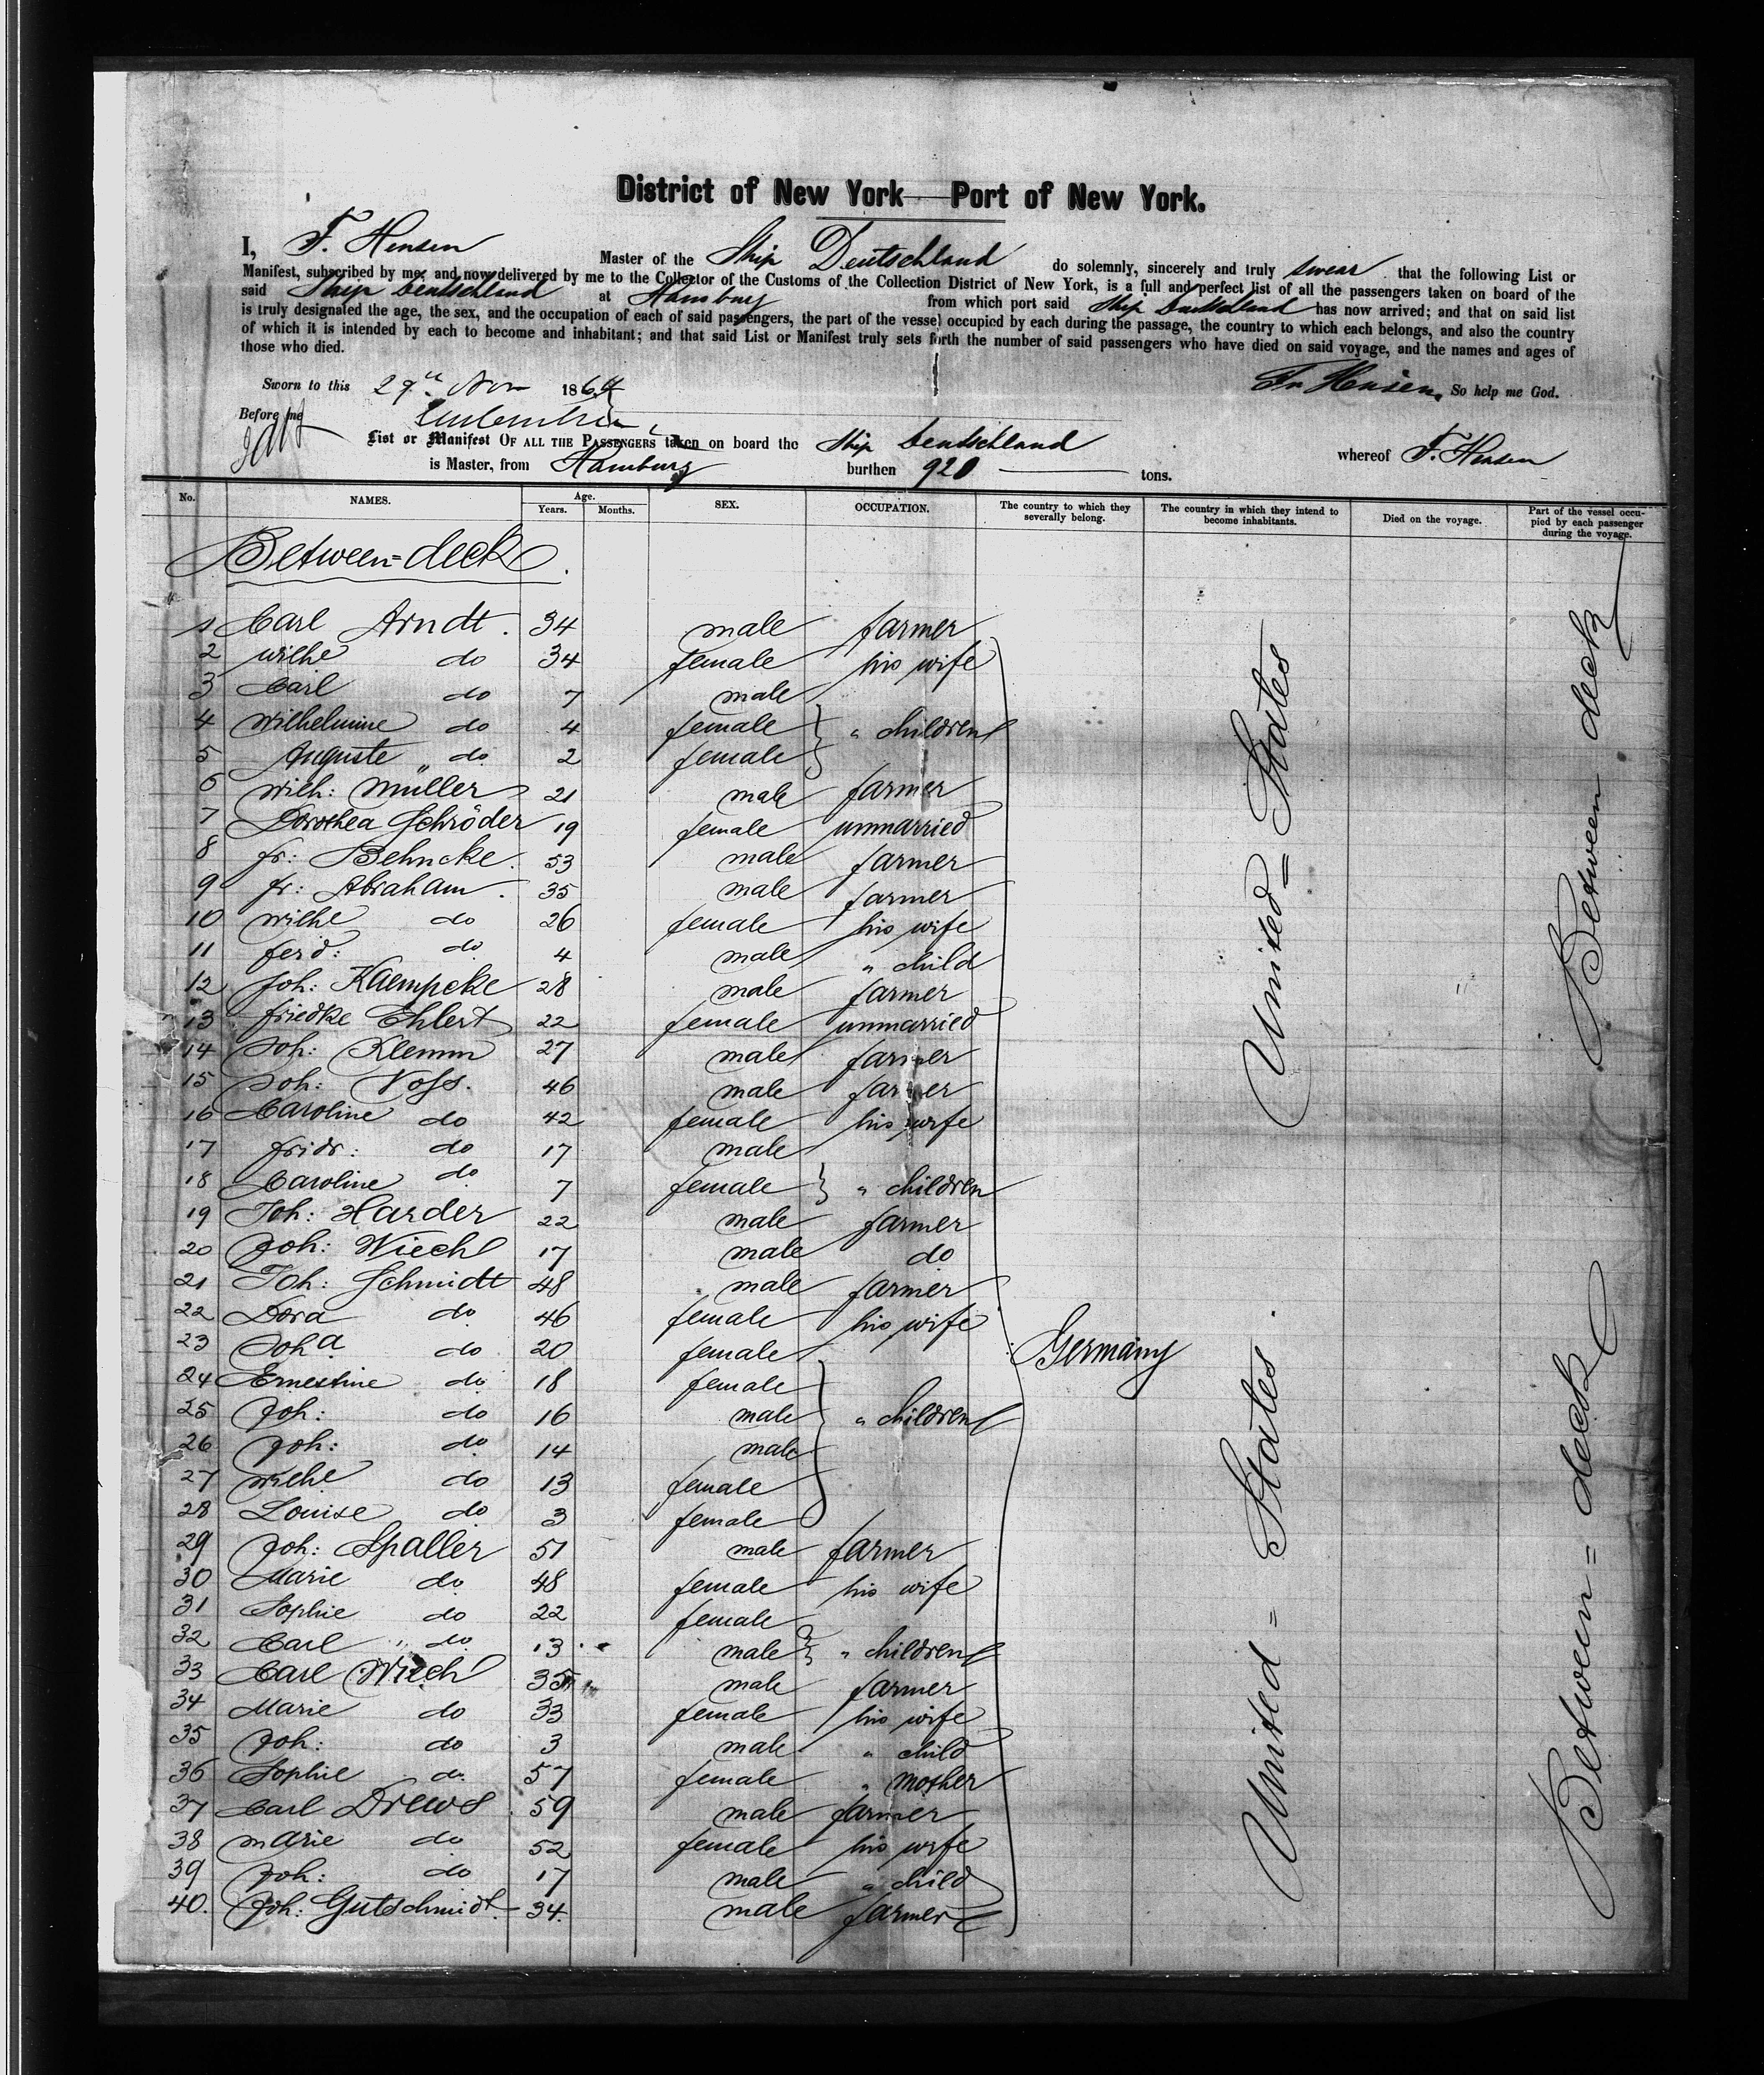 District of New York — Port of New York.
I, F. Hensen Master of the Ship Deutschland do solemnly, sincerely and truly swear that the following List or
Manifest, subscribed by me, and now delivered by me to the Collector of the Customs of the Collection District of New York, is a full and perfect list of all the passengers taken on board of the
said Ship Deutschland at Hamburg from which port said Ship Deutschland has now arrived; and that on said list
is truly designated the age, the sex, and the occupation of each of said passengers, the part of the vessel occupied by each during the passage, the country to which each belongs, and also the country
of which it is intended by each to become and inhabitant; and that said List or Manifest truly sets forth the number of said passengers who have died on said voyage, and the names and ages of
those who died.
Sworn to this 29th Nov 1864 Fr Hensen. So help me God.
Before me
List or Manifest OF ALL THE PASSENGERS taken on board the Ship Deutschland whereof F. Hensen
is Master, from Hamburg burthen 920 tons.
No. NAMES. Age. Years. Months. SEX. OCCUPATION. The country to which they severally belong. The country in which they intend to become inhabitants. Died on the voyage. Part of the vessel occupied by each passenger during the voyage.
Between=deck.
1 Carl Arndt. 34 male farmer
2 Wilhe do 34 female his wife
3 Carl do 7 male
4 Wilhelmine do 4 female " children
5 Auguste " do 2 female
6 Wilh: Müller 21 male farmer
7 Dorothea Schröder 19 female unmarried
8 fr: Behncke. 53 male farmer
9 fr: Abraham. 35 male farmer
10 Wilhe do 26 female his wife
11 ferd: do 4 male " child
12 Joh: Kaempcke 28 male farmer
13 friedke Ehlert 22 female unmarried
14 Joh: Klemm 27 male farmer
15 Joh: Voss. 46 male farmer
16 Caroline do 42 female his wife
17 fridr: do 17 male
18 Caroline do 7 female " children
19 Joh: Harder 22 male farmer
20 Joh: Wiechl 17 male do
21 Joh: Schmidt 48 male farmer
22 Dora do 46 female his wife
23 Joha do 20 female
24 Ernestine do 18 female
25 Joh: do 16 male " children
26 Joh: do 14 male
27 Wilhe do 13 female
28 Louise do 3 female
29 Joh: Spaller 51 male farmer
30 Marie do 48 female his wife
31 Sophie do 22 female
32 Carl " do 13 male " children
33 Carl Wiechl 35 male farmer
34 Marie do 33 female his wife
35 Joh: do 3 male " child
36 Sophie do 57 female " mother
37 Carl Drews 59 male farmer
38 Marie do 52 female his wife
39 Joh: do 17 male " child
40. Joh: Gutschmidt 34. male farmer
Germany
United=States
United=States
Between deck
Between=deck